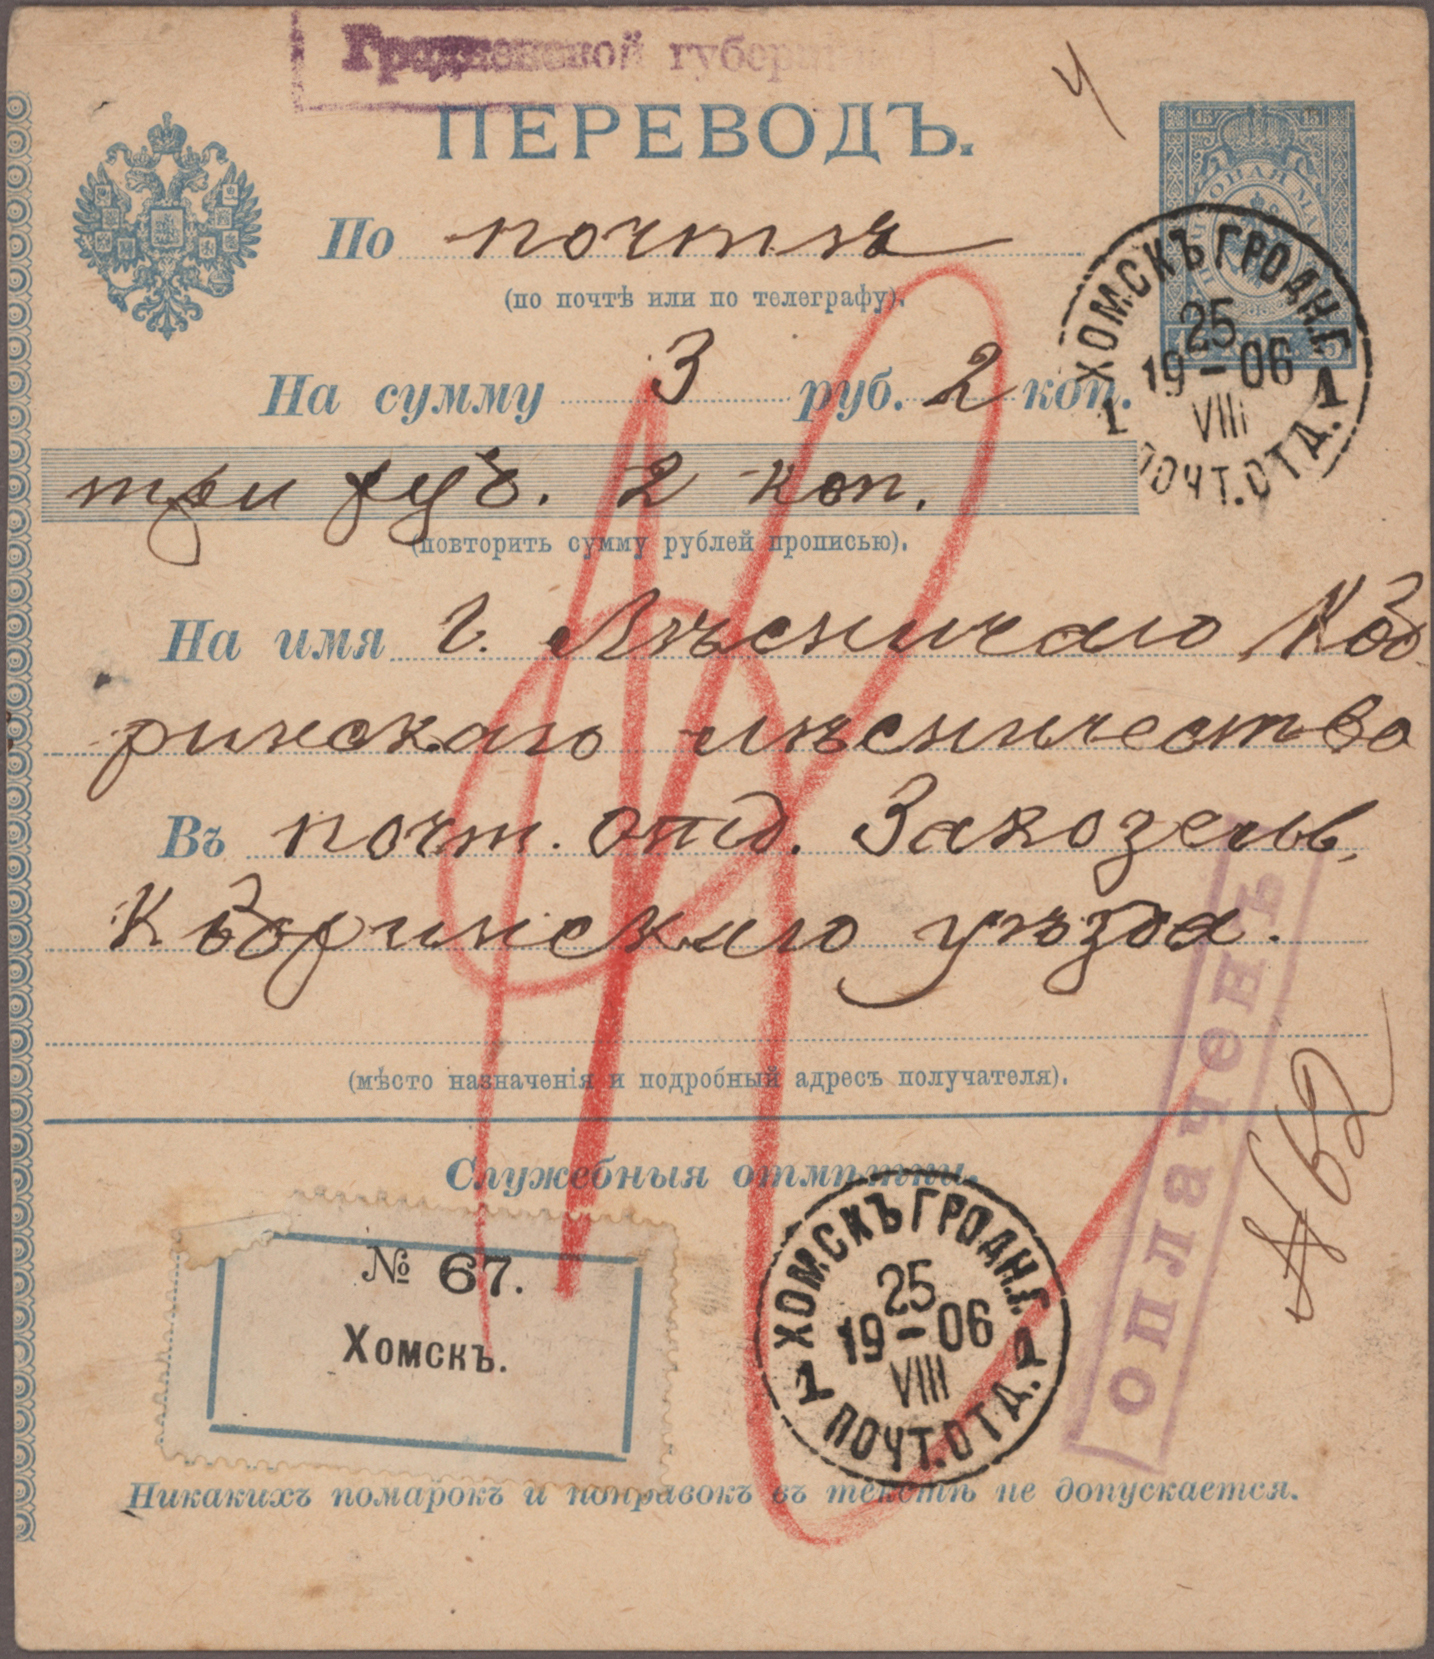 Гродненской губернiи
ПЕРЕВОДЪ.
По почтѣ
(по почтѣ или по телеграфу).
ХОМСКЪ ГРОДН.Г.
25
19-06
VIII
1 1
ПОЧТ.ОТД.
На сумму 3 руб. 2 коп.
три руб. 2 коп.
(повторить сумму рублей прописью).
На имя г. Лѣсничаго Коб
ринскаго лѣсничества
Въ почт. отд. Закозель,
Кобринскаго уѣзда.
(мѣсто назначенія и подробный адресъ получателя).
Служебныя отмѣтки.
№ 67.
Хомскъ.
ХОМСКЪ ГРОДН.Г.
25
19-06
VIII
1 1
ПОЧТ.ОТД.
ОПЛАЧЕНЪ
62
Никакихъ помарокъ и поправокъ въ текстѣ не допускается.